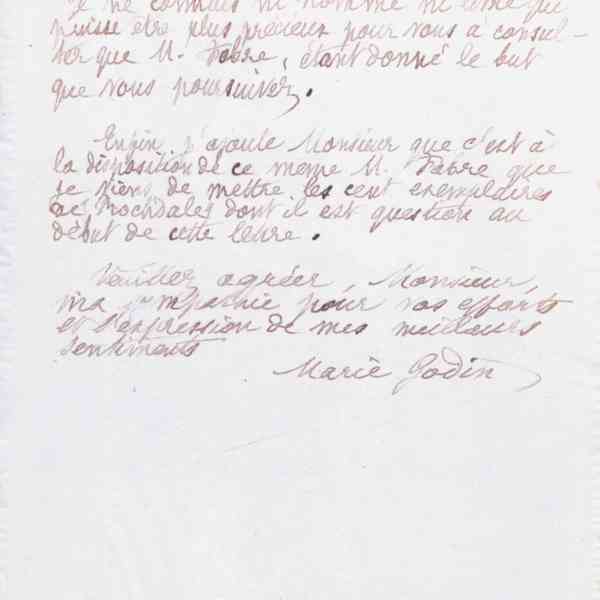 Je ne connais ni homme ni
puisse être plus précieux pour vous à consul-
ter que M. Fabre, étant donné le but
que vous poursuivez.
Enfin j'ajoute Monsieur que c'est à
la disposition de ce même M. Fabre que
je viens de mettre les cent exemplaires
de Rochdales dont il est question au
début de cette lettre.
Veuillez agréer, Monsieur,
ma sympathie pour vos efforts
et l'expression de mes meilleurs
sentiments
Marie Godin